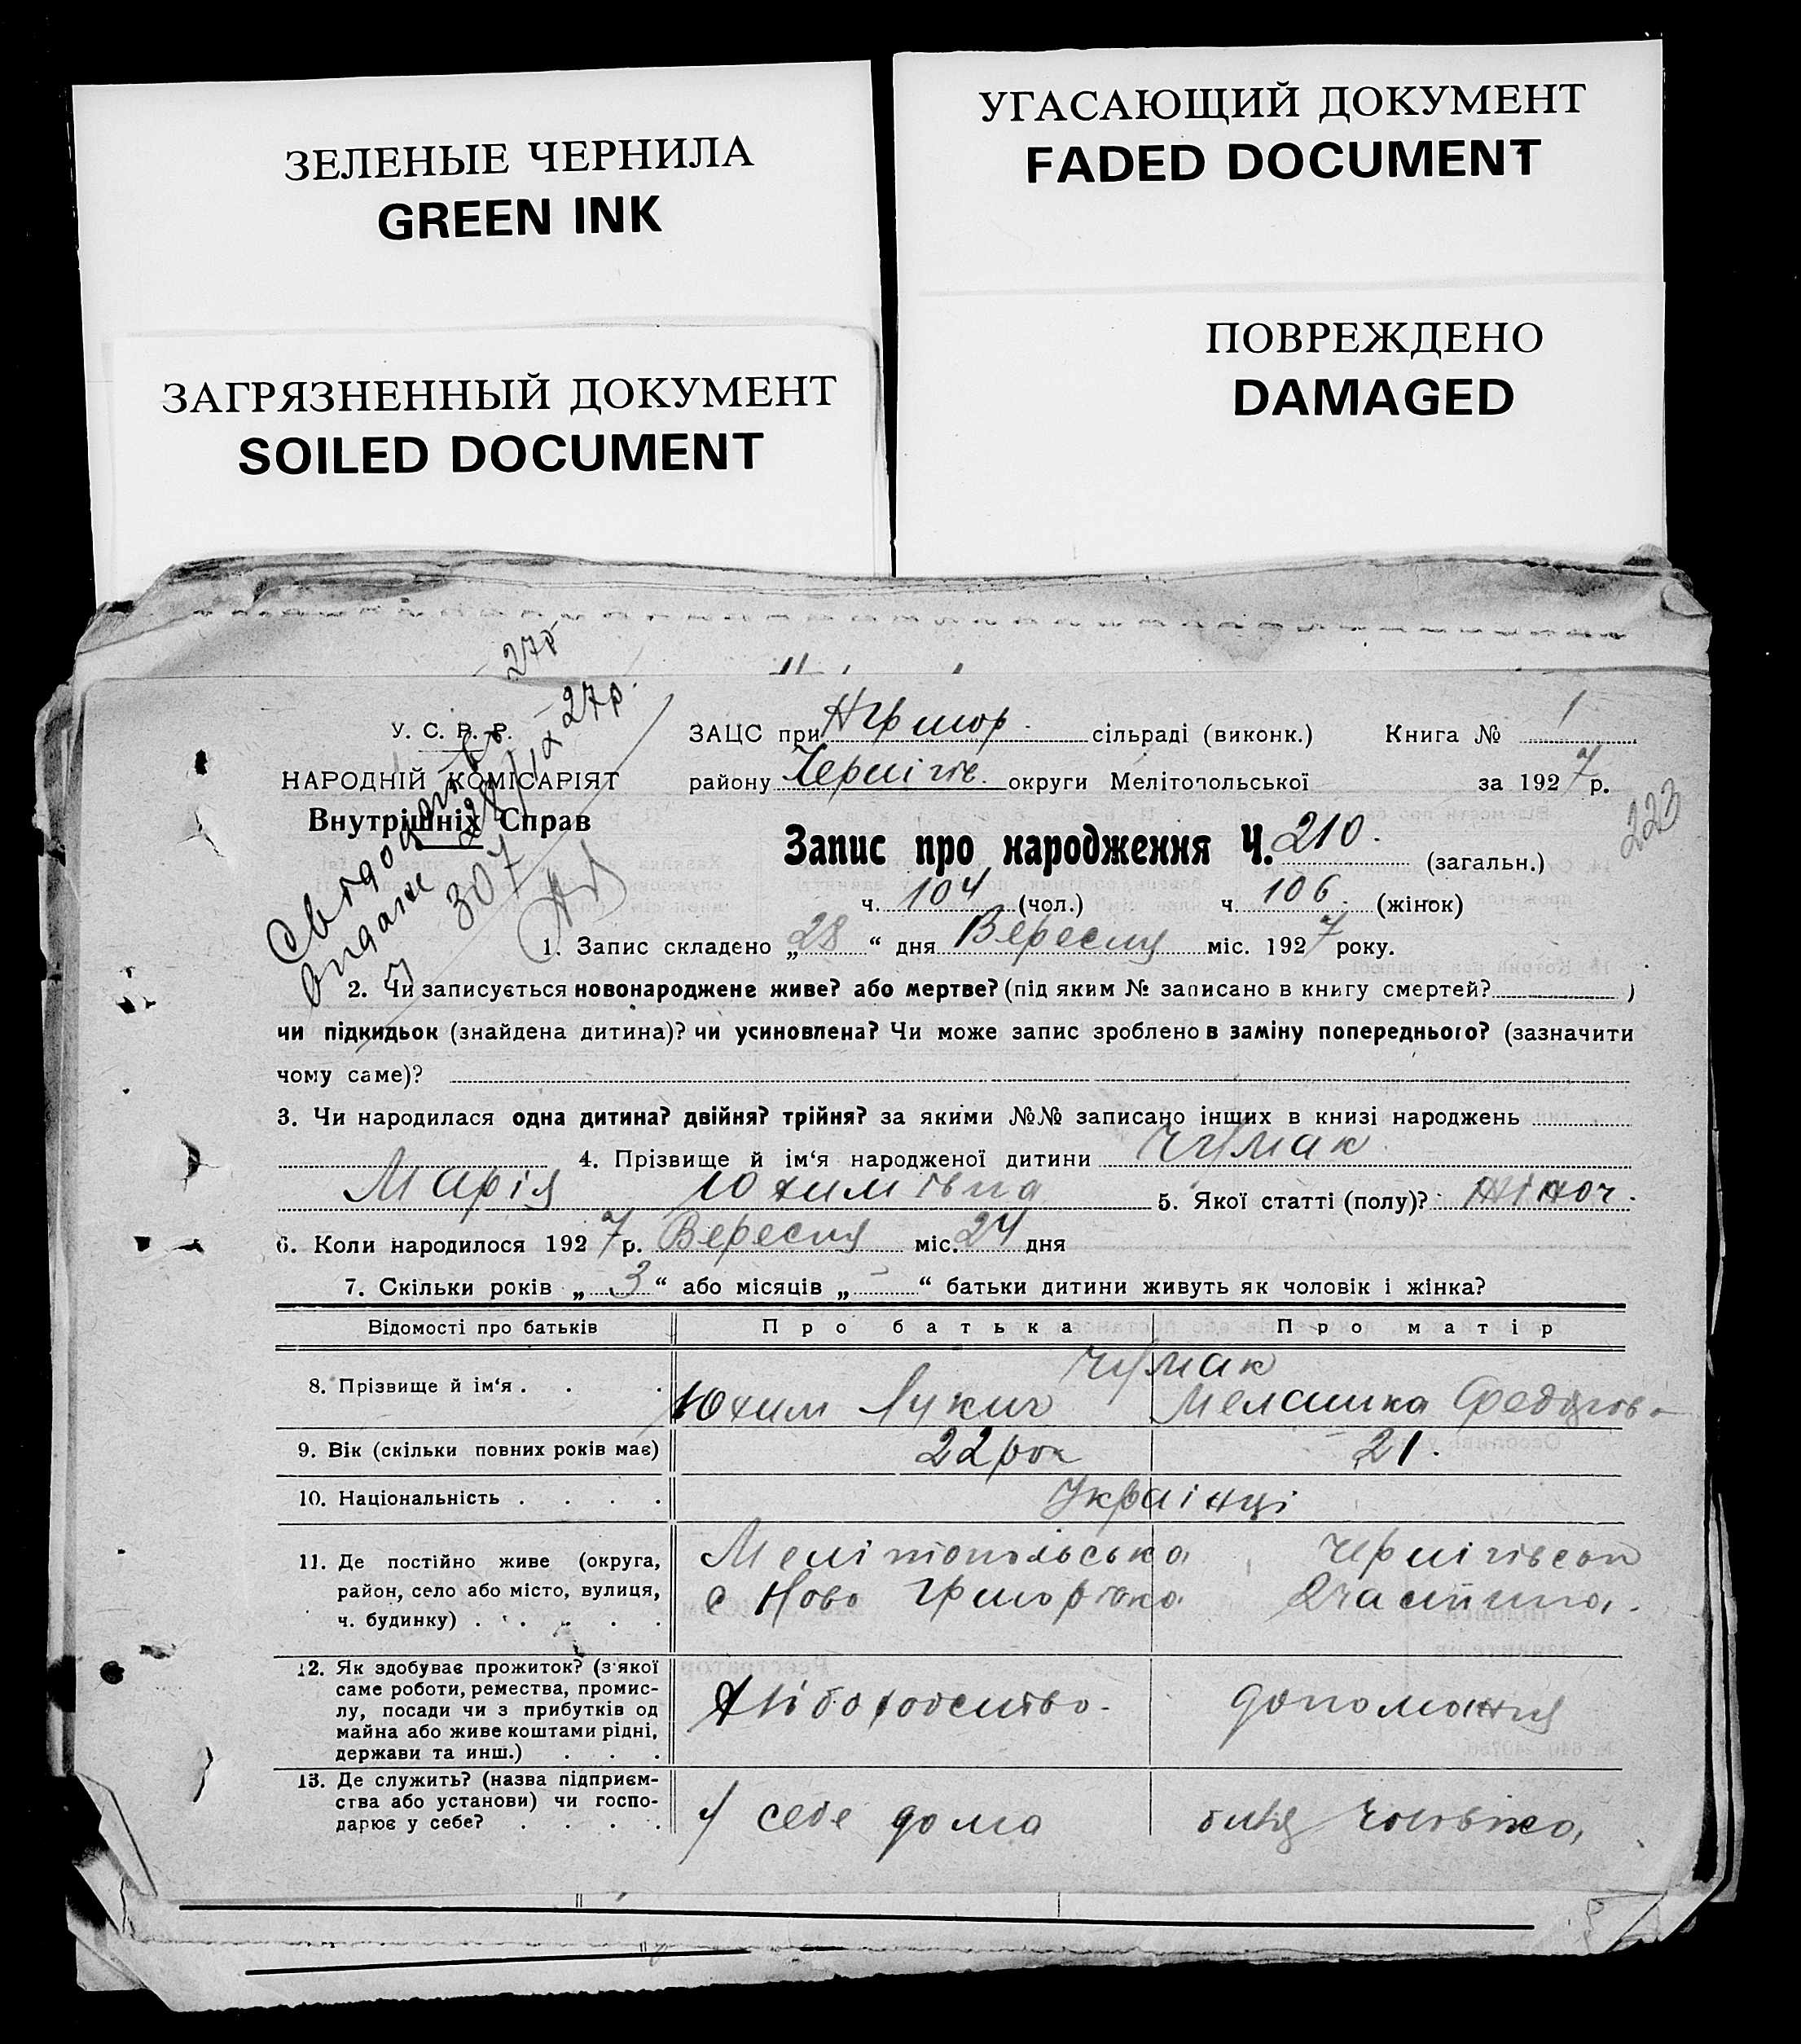 ЗЕЛЕНЫЕ ЧЕРНИЛА
GREEN INK
УГАСАЮЩИЙ ДОКУМЕНТ
FADED DOCUMENT
ЗАГРЯЗНЕННЫЙ ДОКУМЕНТ
SOILED DOCUMENT
ПОВРЕЖДЕНО
DAMAGED
27р
28/IX-27р.
307
У. С. Р. Р.
НАРОДНІЙ КОМІСАРІЯТ
Внутрішніх Справ
ЗАЦС при сільраді (виконк.) Книга № 1
району Чернігів. округи Мелітопольської за 1927 р.
223
Запис про народження Ч. 210. (загальн.)
ч. 104 (чол.) ч. 106. (жінок)
1. Запис складено „28“ дня Вересня міс. 1927 року.
2. Чи записується новонароджене живе? або мертве? (під яким № записано в книгу смертей? )
чи підкидьок (знайдена дитина)? чи усиновлена? Чи може запис зроблено в заміну попереднього? (зазначити
чому саме)?
3. Чи народилася одна дитина? двійня? трійня? за якими №№ записано інших в книзі народжень
4. Прізвище й ім‘я народженої дитини Чумак
Марія Юхимівна 5. Якої статті (полу)? Жіноч.
6. Коли народилося 1927 р. Вересня міс. 24 дня
7. Скільки років „3“ або місяців „-“ батьки дитини живуть як чоловік і жінка?
Відомості про батьків Про батька Про матір
Чумак
8. Прізвище й ім‘я . . . Юхим Лукич Мелашка
9. Вік (скільки повних років має) 22 рок 21.
10. Національність . . . . Українці
11. Де постійно живе (округа, район, село або місто, вулиця, ч. будинку) . . . . .
Мелітопольська
с Ново
12. Як здобуває прожиток? (з якої саме роботи, ремества, промислу, посади чи з прибутків од майна або живе коштами рідні, держави та инш.) . . .
13. Де служить? (назва підприємства або установи) чи господарює у себе? . . . .
У себе дома біля чоловіка.